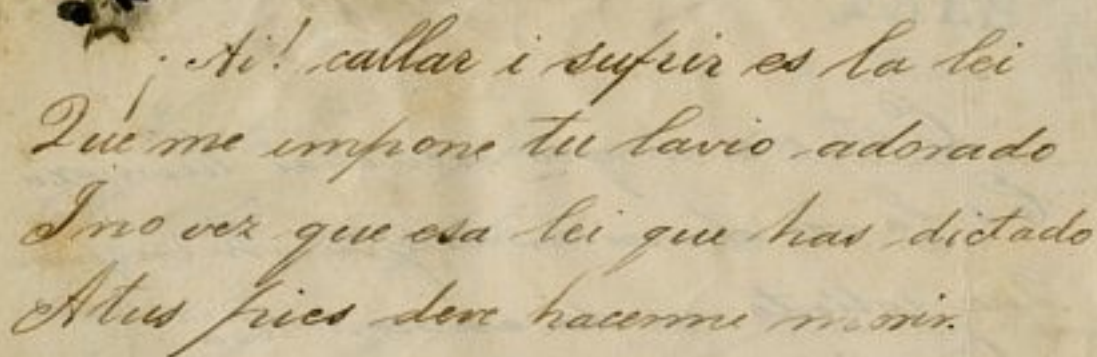 ¡Ai! callar i sufrir es la lei
Que me impone tu lavio adorado
I no vez que esa lei que has dictado
A tus pies deve hacerme morir.